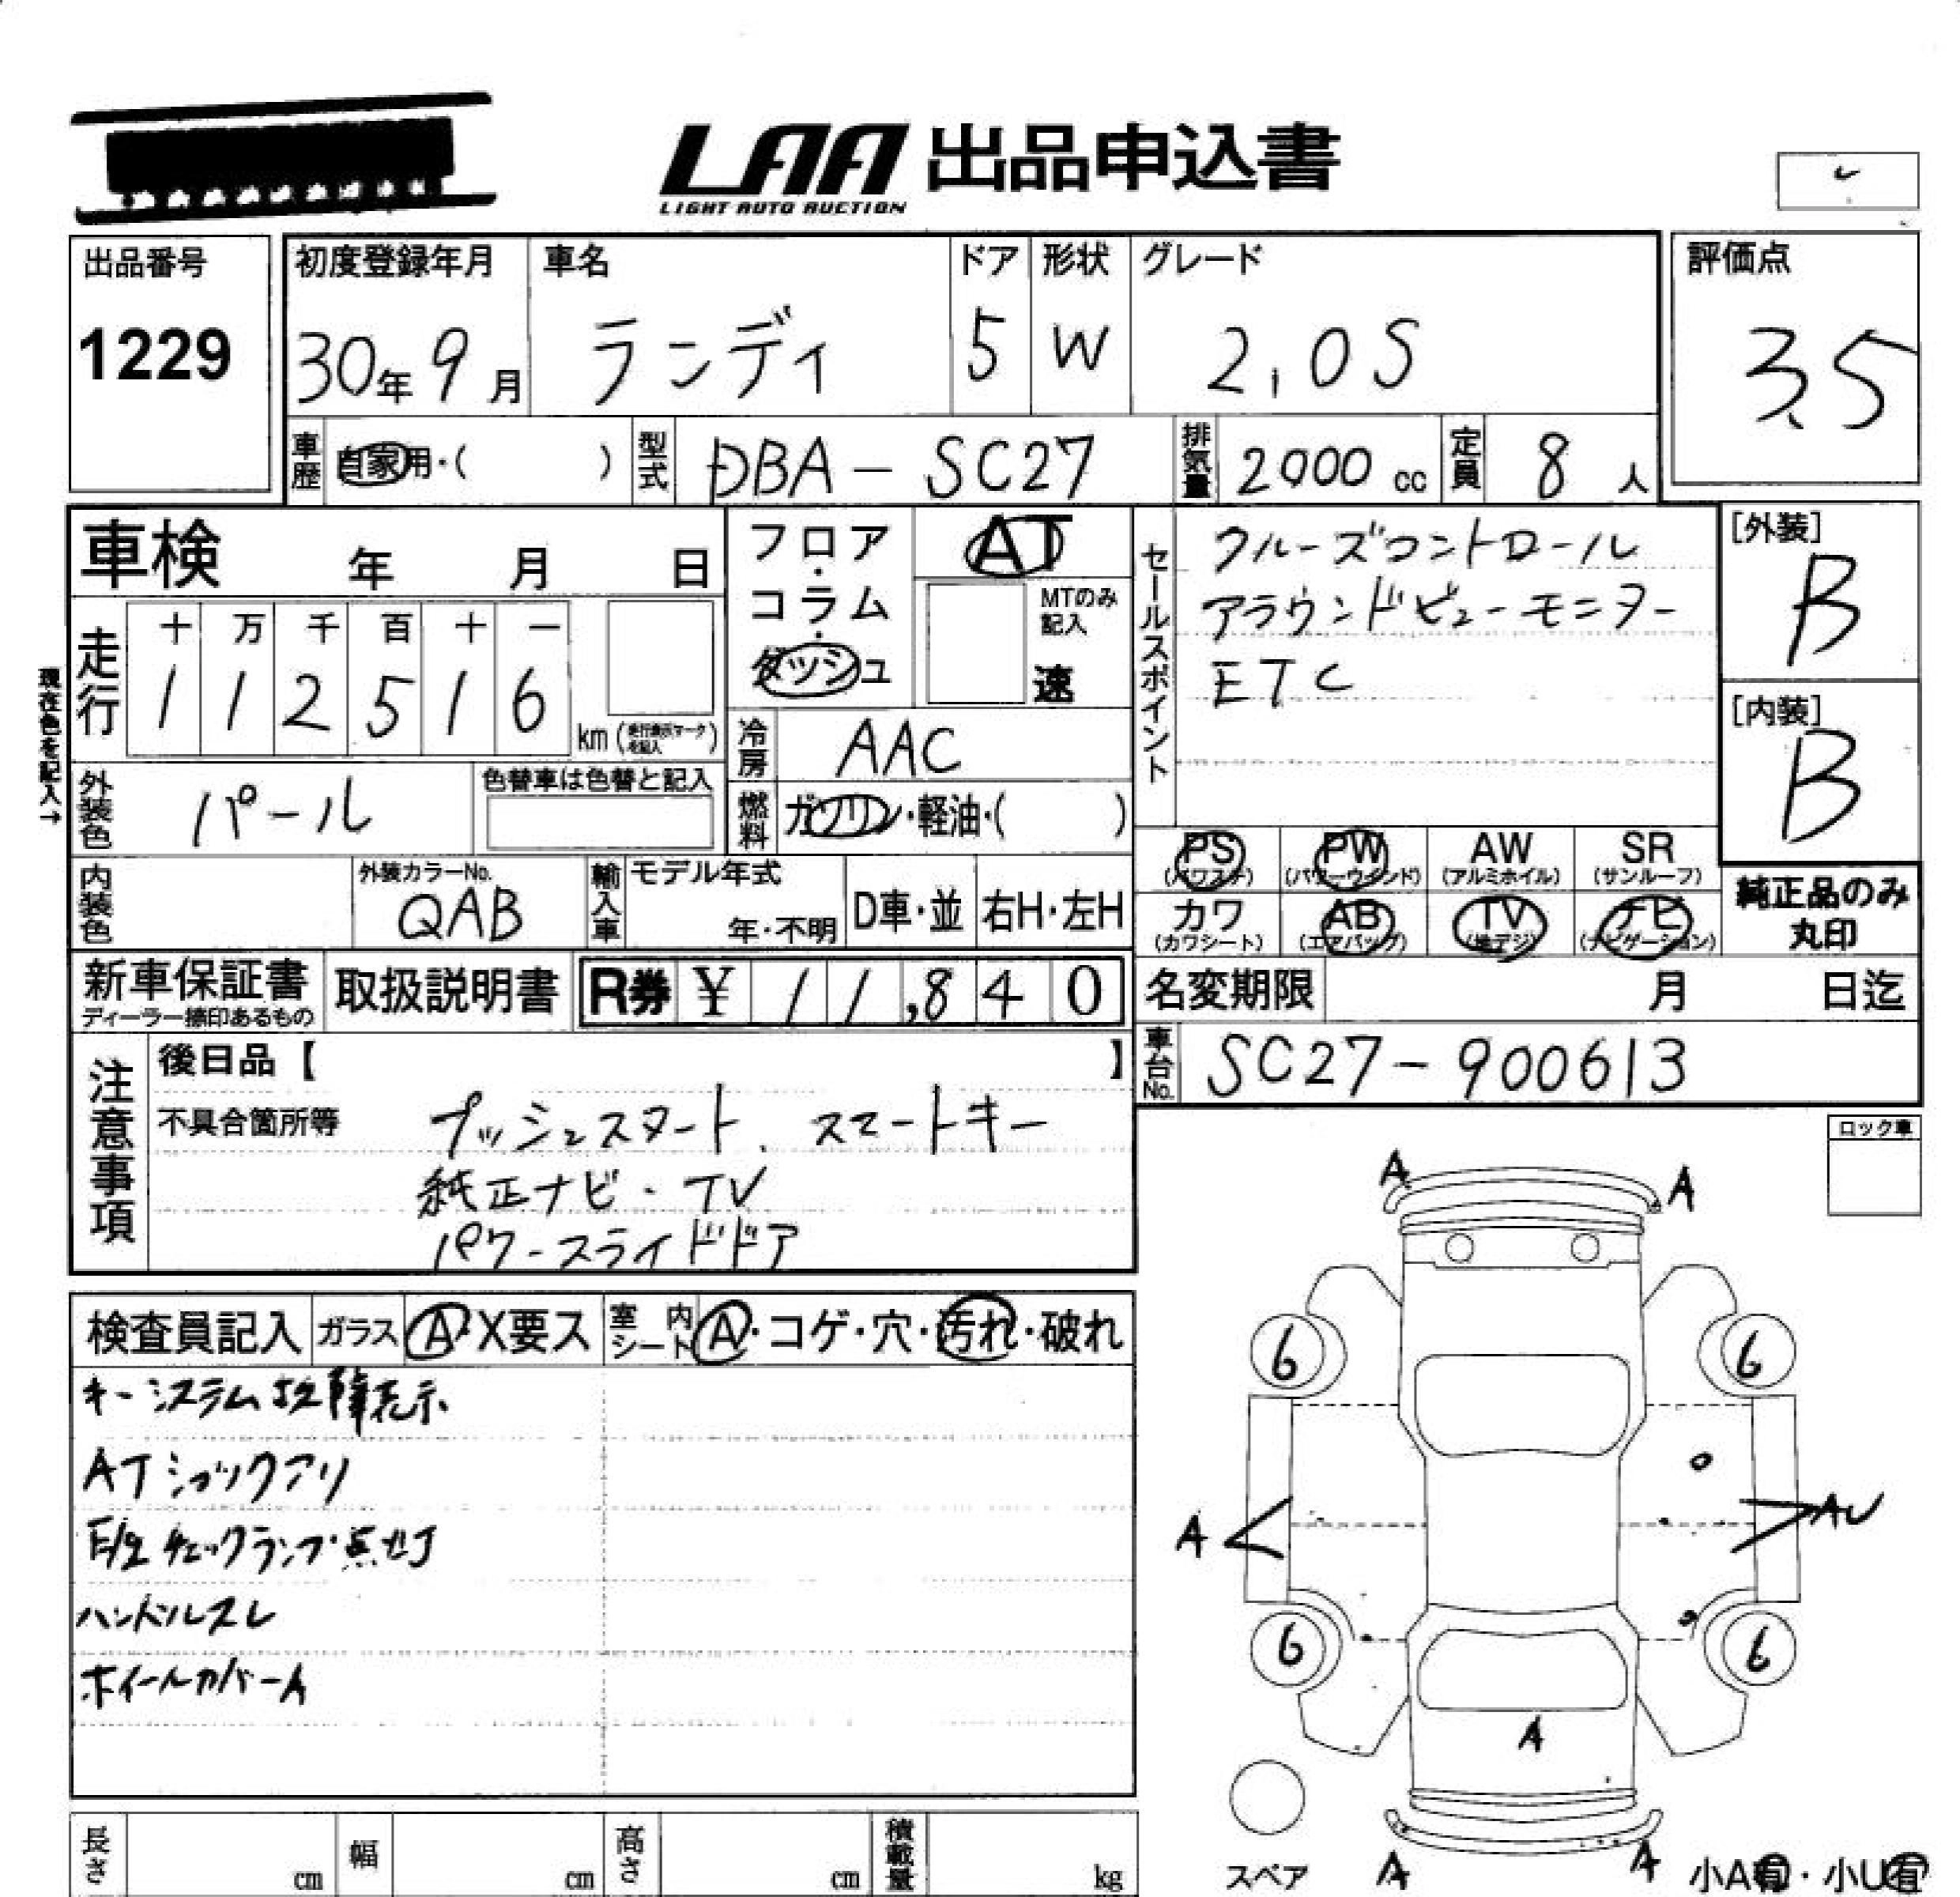 LAA 出品申込書
LIGHT AUTO AUCTION
出品番号
1229
初度登録年月
30年 9月
車名
ランディ
ドア
5
形状
W
グレード
2.0S
評価点
3.5
車歴 自家用・( )
型式 DBA-SC27
排気量 2000 cc
定員 8 人
車検 年 月 日
フロア・コラム・ダッシュ
AT
MTのみ記入
速
セールスポイント
クルーズコントロール
アラウンドビューモニター
ETC
[外装]
B
[内装]
B
現在色を記入→
走行
十 万 千 百 十 一
1 1 2 5 1 6
km(走行表示マークを記入)
冷房 AAC
外装色 パール
色替車は色替と記入
燃料 ガソリン・軽油・( )
PS (パワステ)
PW (パワーウインド)
AW (アルミホイル)
SR (サンルーフ)
カワ (カワシート)
AB (エアバッグ)
TV (地デジ)
ナビ (ナビゲーション)
純正品のみ丸印
内装色
外装カラーNo.
QAB
輸入車
モデル年式
年・不明
D車・並
右H・左H
新車保証書
ディーラー捺印あるもの
取扱説明書
R券 ¥ 11,840
名変期限 月 日迄
車台No. SC27-900613
注意事項
後日品【 】
不具合箇所等
プッシュスタート、スマートキー
純正ナビ・TV
パワースライドドア
ロック車
検査員記入
ガラス A・X要ス
室内シート A・コゲ・穴・汚れ・破れ
キーシステム故障表示
ATショックアリ
E/g チェックランプ点灯
ハンドルスレ
ホイールカバーA
A A
6 6
A AU
6 6
A
A A
スペア
小A有・小U有
長さ cm
幅 cm
高さ cm
積載量 kg